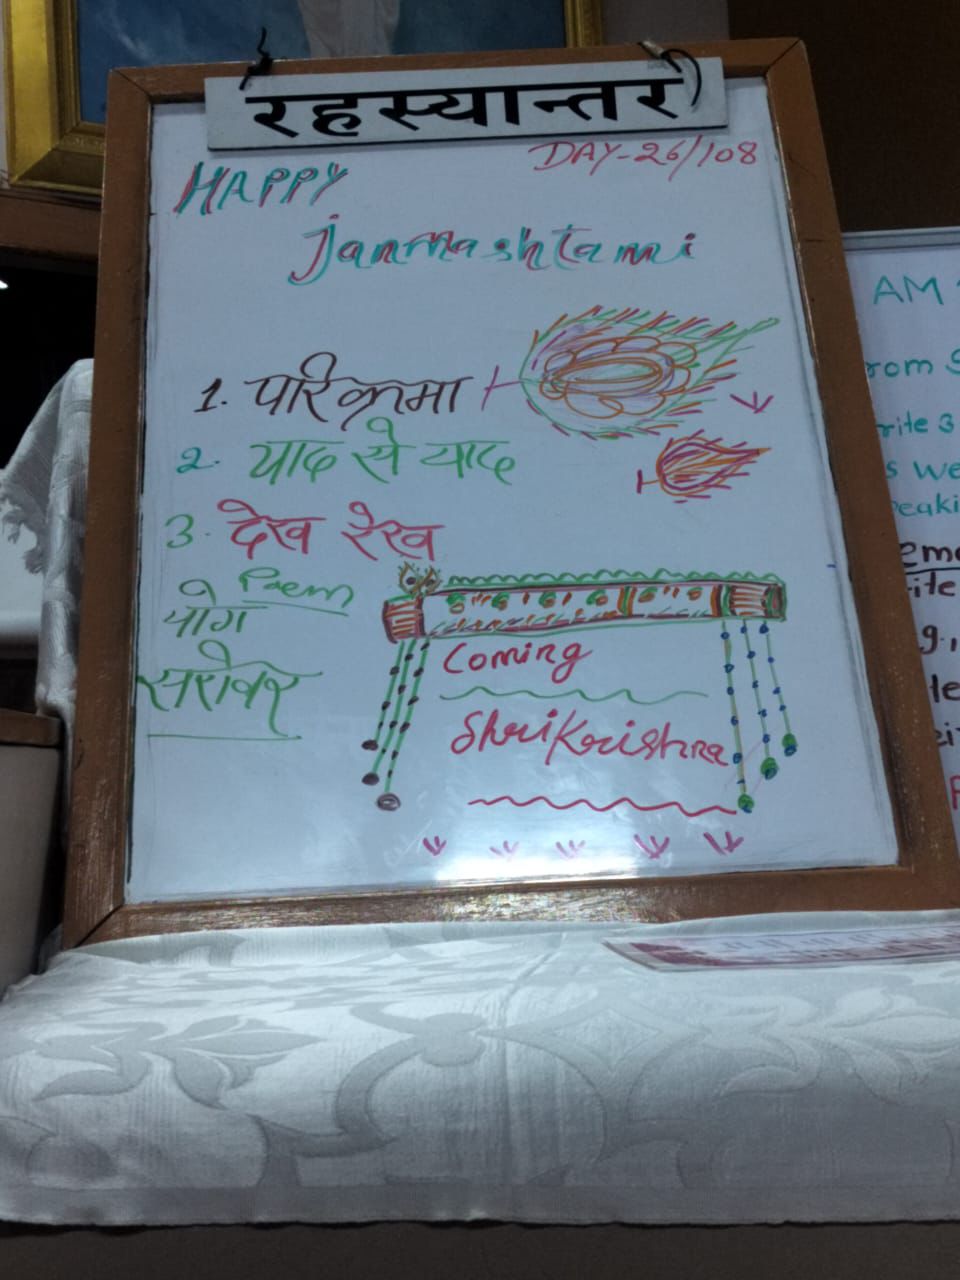 रहस्यान्तर
DAY-26/108
HAPPY
Janmashtami
1. परिक्रमा
2. याद से याद
3. देख रेख
Poem
योग
सरोवर
Coming
Shri Krishna
AM
rom S
rite 3
s we
eaki